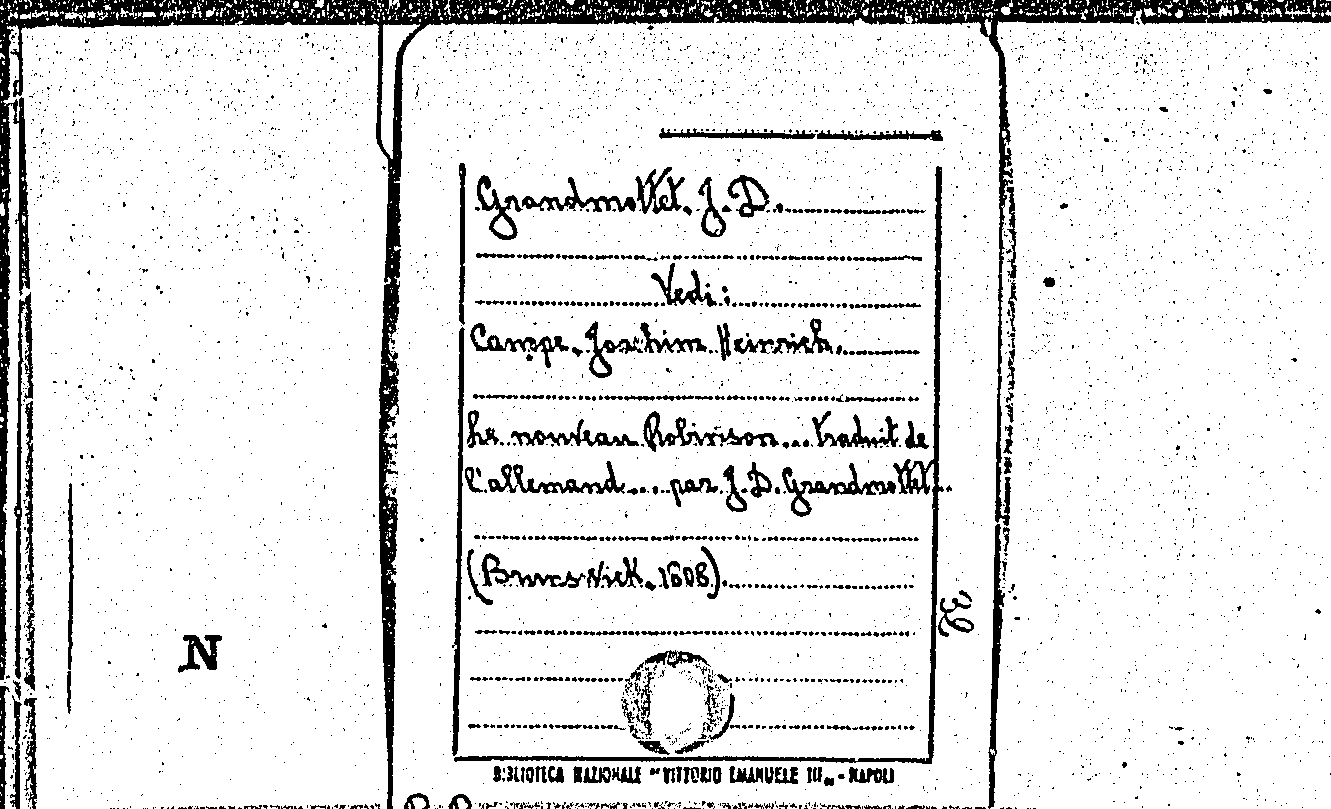 Grandmottet, J. D.
Vedi:
Campe, Joachim Heinrich.
Le nouveau Robinson... traduit de
l'allemand... par J. D. Grandmottet...
(Brunswick, 1608).
N
BIBLIOTECA NAZIONALE "VITTORIO EMANUELE III„ - NAPOLI